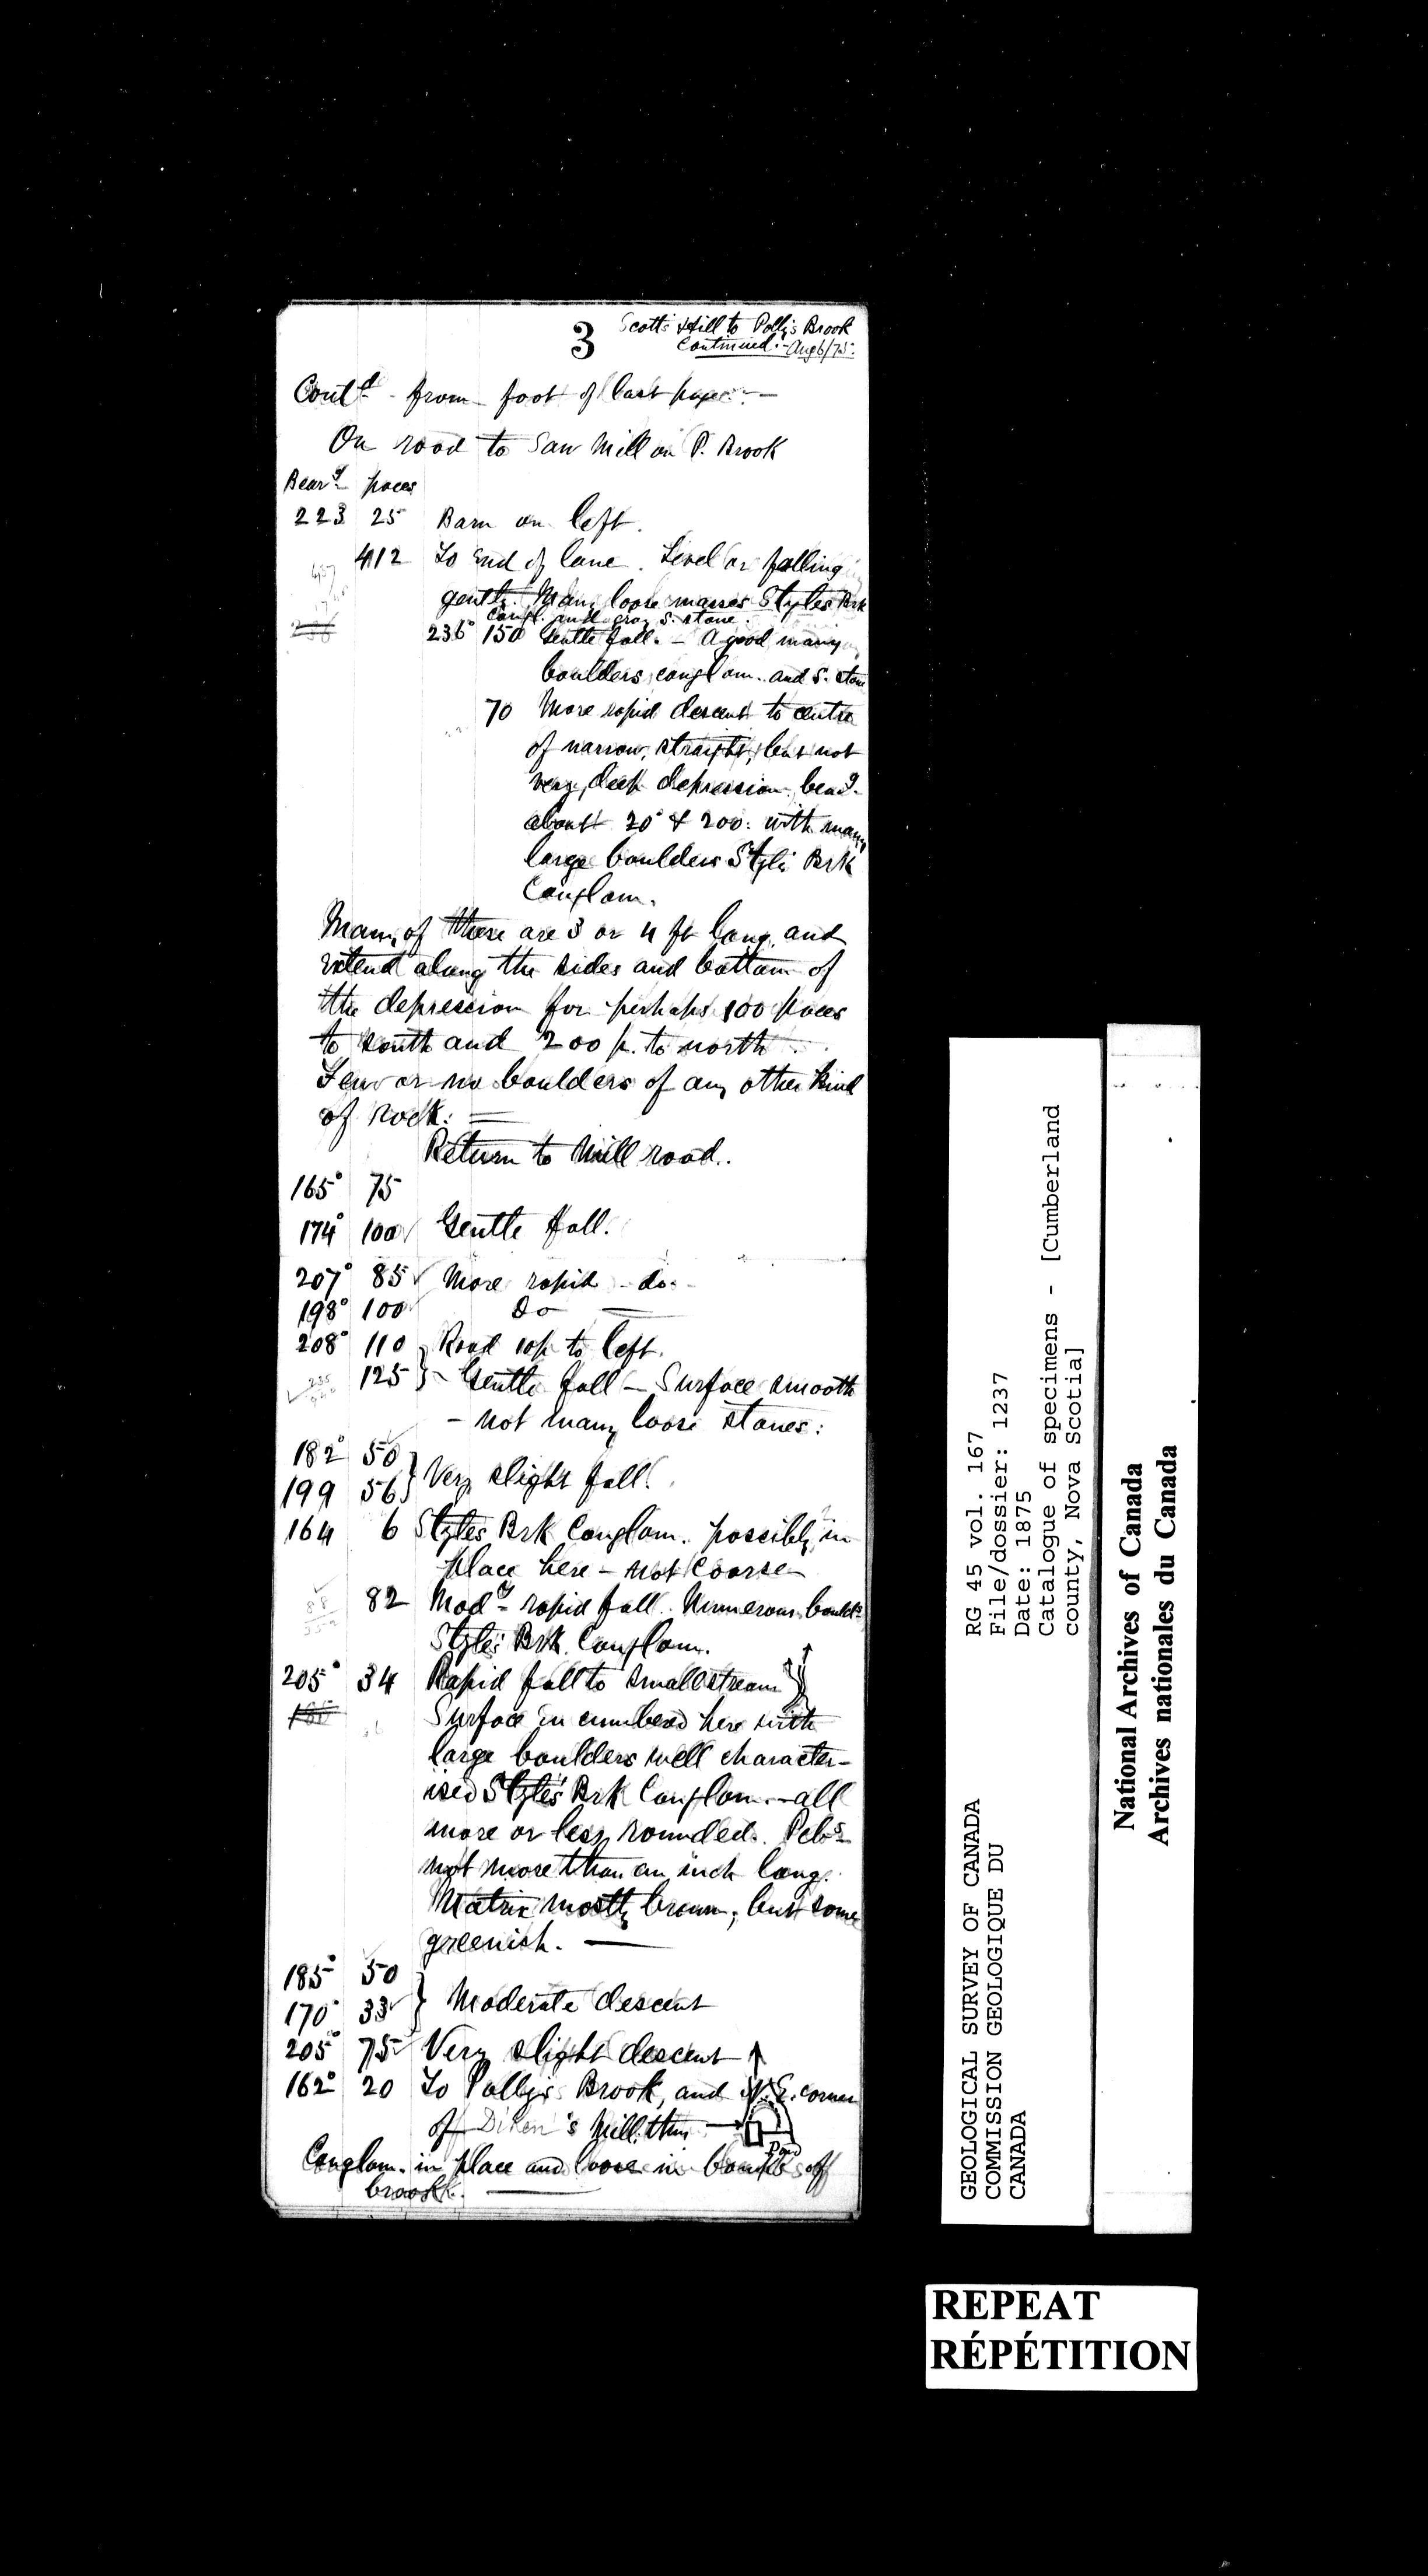 3
Scott's Hill to Polly's Brook
Continued:- Aug 6/75:
Contd. from foot of last page:-
On road to Saw Mill on P. Brook
Bearg. paces
223 25 Barn on left.
412 To End of lane. Level or falling
gently. Many loose masses Styles Brk
Congl. and gray S. stone.
236° 150 Gentle fall. - A good many
boulders conglom. and S. stone
70 More rapid descent to centre
of narrow, straight, but not
very deep depression, bearg.
about 20° & 200: with many
large boulders Styles Brk
Conglom.
Many of these are 3 or 4 ft long, and
extend along the sides and bottom of
the depression for perhaps 100 paces
to south and 200 p. to north.
Few or no boulders of any other kind
of rock:
Return to Mill road.
165° 75
174° 100 Gentle fall.
207° 85 More rapid - do.
198° 100 Do
208° 110 Road 10p to left.
125 } - Gentle fall - Surface smooth
- not many loose stones:
182° 50
199 56 } Very slight fall.
164 6 Styles Brk Conglom. possibly in
place here - not coarse
82 Mody. rapid fall. Numerous boulds.
Styles Brk. Conglom.
205° 34 Rapid fall to small stream
Surface incumbered here with
large boulders well character-
ised Styles' Brk Conglom. - all
more or less rounded. Pebs.
not more than an inch long.
Matrix mostly brown; but some
greenish.
185° 50
170° 33 } Moderate descent
205° 75 Very slight descent
162° 20 To Polly's Brook, and N.E. corner
of Mill, thus
Pond
Conglom. in place and loose in banks of
brook.
RG 45 vol. 167
File/dossier: 1237
Date: 1875
Catalogue of specimens - [Cumberland
county, Nova Scotia]
GEOLOGICAL SURVEY OF CANADA
COMMISSION GEOLOGIQUE DU
CANADA
National Archives of Canada
Archives nationales du Canada
REPEAT
RÉPÉTITION